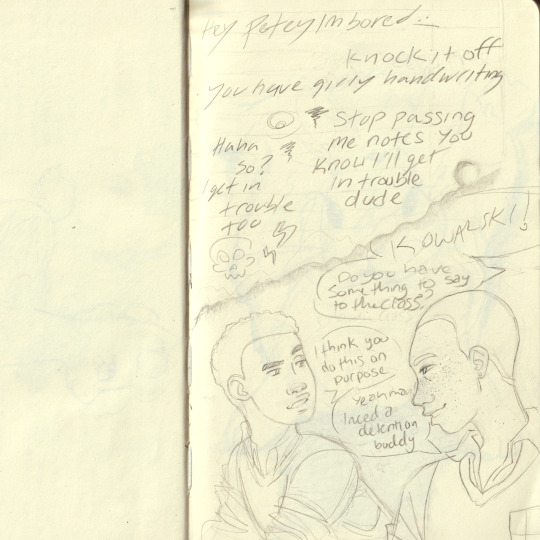 Hey Petey Im bored
Knock it off
you have girly handwriting
Stop passing
me notes you
know I'll get
in trouble
dude
Haha
so?
I get in
trouble
too
KOWALSKI!
Do you have
something to say
to the class?
I think you
do this on
purpose
Yeah man
I need a
detention
buddy